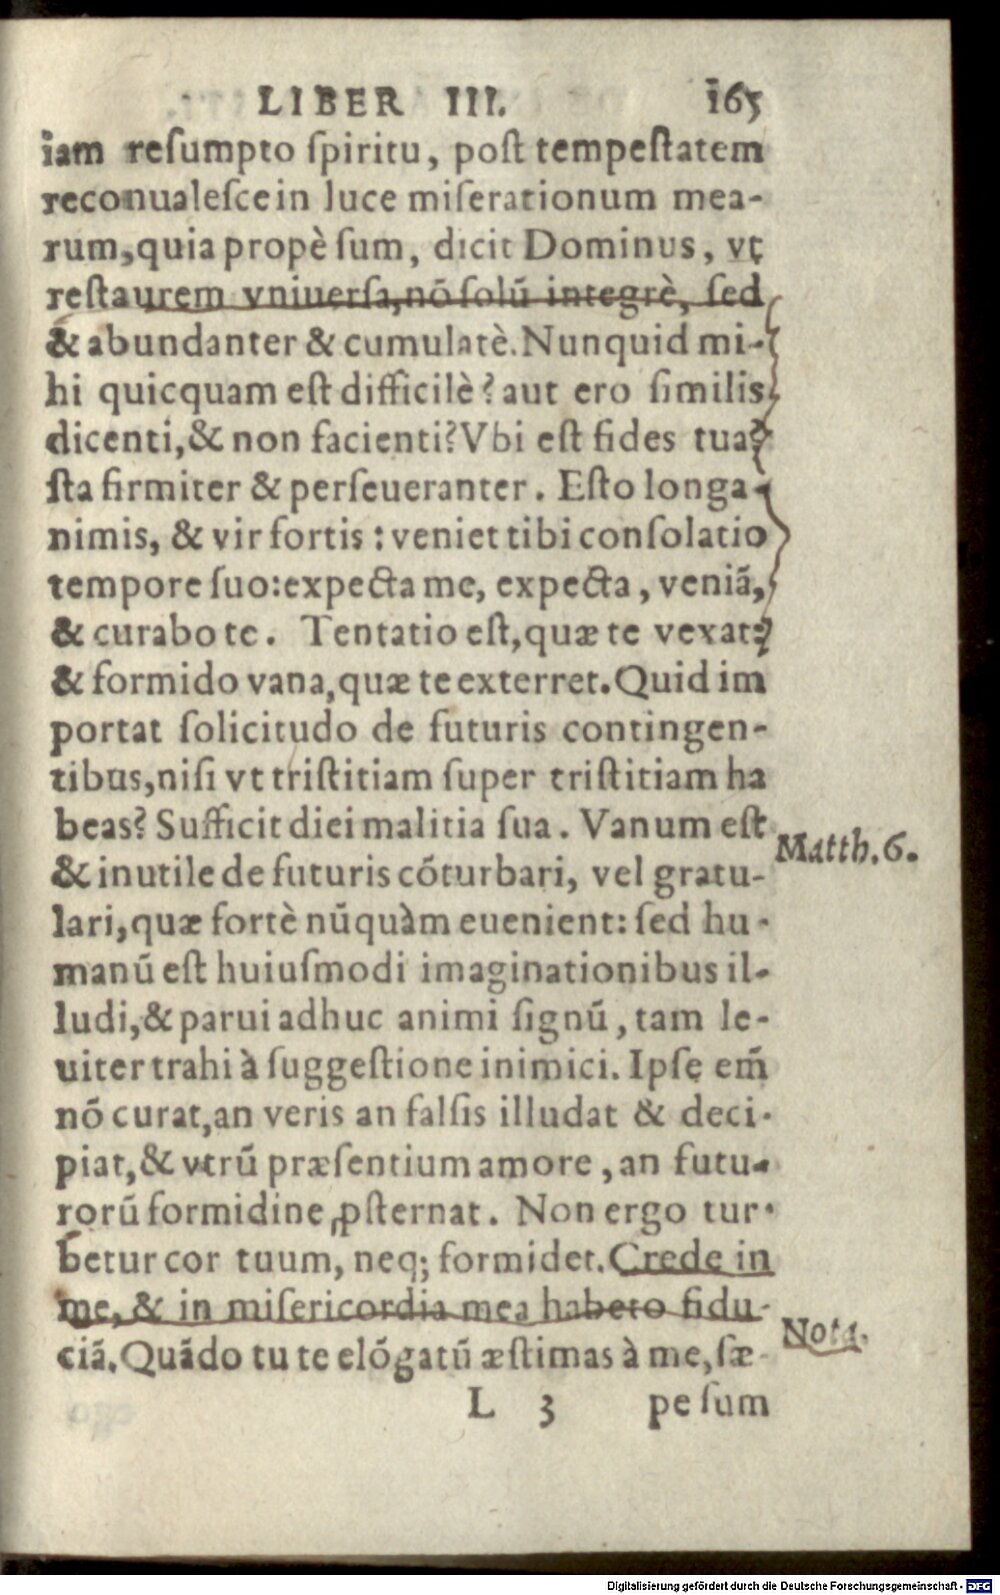 LIBER III. 165
iam reſumpto ſpiritu, poſt tempeſtatem
reconualeſce in luce miſerationum mea-
rum, quia propè ſum, dicit Dominus, vt
reſtaurem vniuerſa, nõ ſolũ integrè, ſed
& abundanter & cumulatè. Nunquid mi-
hi quicquam eſt difficilè? aut ero ſimilis
dicenti, & non facienti? Vbi eſt fides tua?
ſta firmiter & perſeueranter. Eſto longa-
nimis, & vir fortis: veniet tibi conſolatio
tempore ſuo: expecta me, expecta, veniã,
& curabo te. Tentatio eſt, quæ te vexat,
& formido vana, quæ te exterret. Quid im
portat ſolicitudo de futuris contingen-
tibus, niſi vt triſtitiam ſuper triſtitiam ha
beas? Sufficit diei malitia ſua. Vanum eſt
Matth. 6.
& inutile de futuris cõturbari, vel gratu-
lari, quæ fortè nũquàm euenient: ſed hu-
manũ eſt huiuſmodi imaginationibus il-
ludi, & parui adhuc animi ſignũ, tam le-
uiter trahi à ſuggeſtione inimici. Ipſe em̃
nõ curat, an veris an falſis illudat & deci-
piat, & vtrũ præſentium amore, an futu-
rorũ formidine ꝓſternat. Non ergo tur-
betur cor tuum, neq; formidet. Crede in
me, & in miſericordia mea habeto fidu-
Nota.
ciã. Quãdo tu te elõgatũ æſtimas à me, ſæ-
L 3 pe ſum
Digitalisierung gefördert durch die Deutsche Forschungsgemeinschaft - DFG